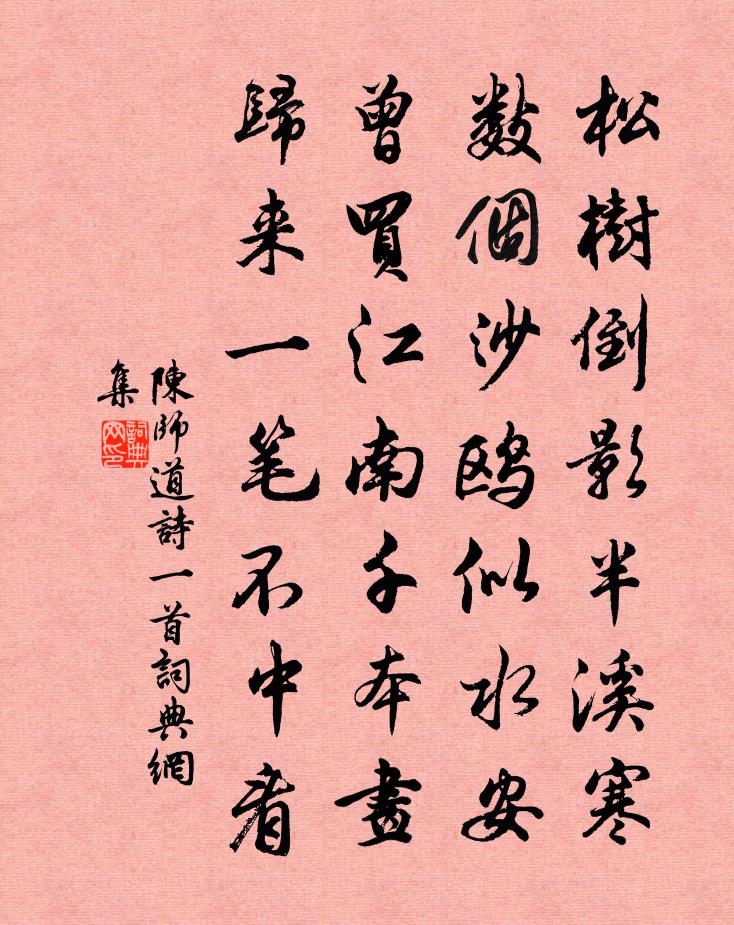 松樹倒影半溪寒
數個沙鷗似水安
曾買江南千本畫
歸来一笔不中看
陳師道詩一首詞典網
集
詞典網印